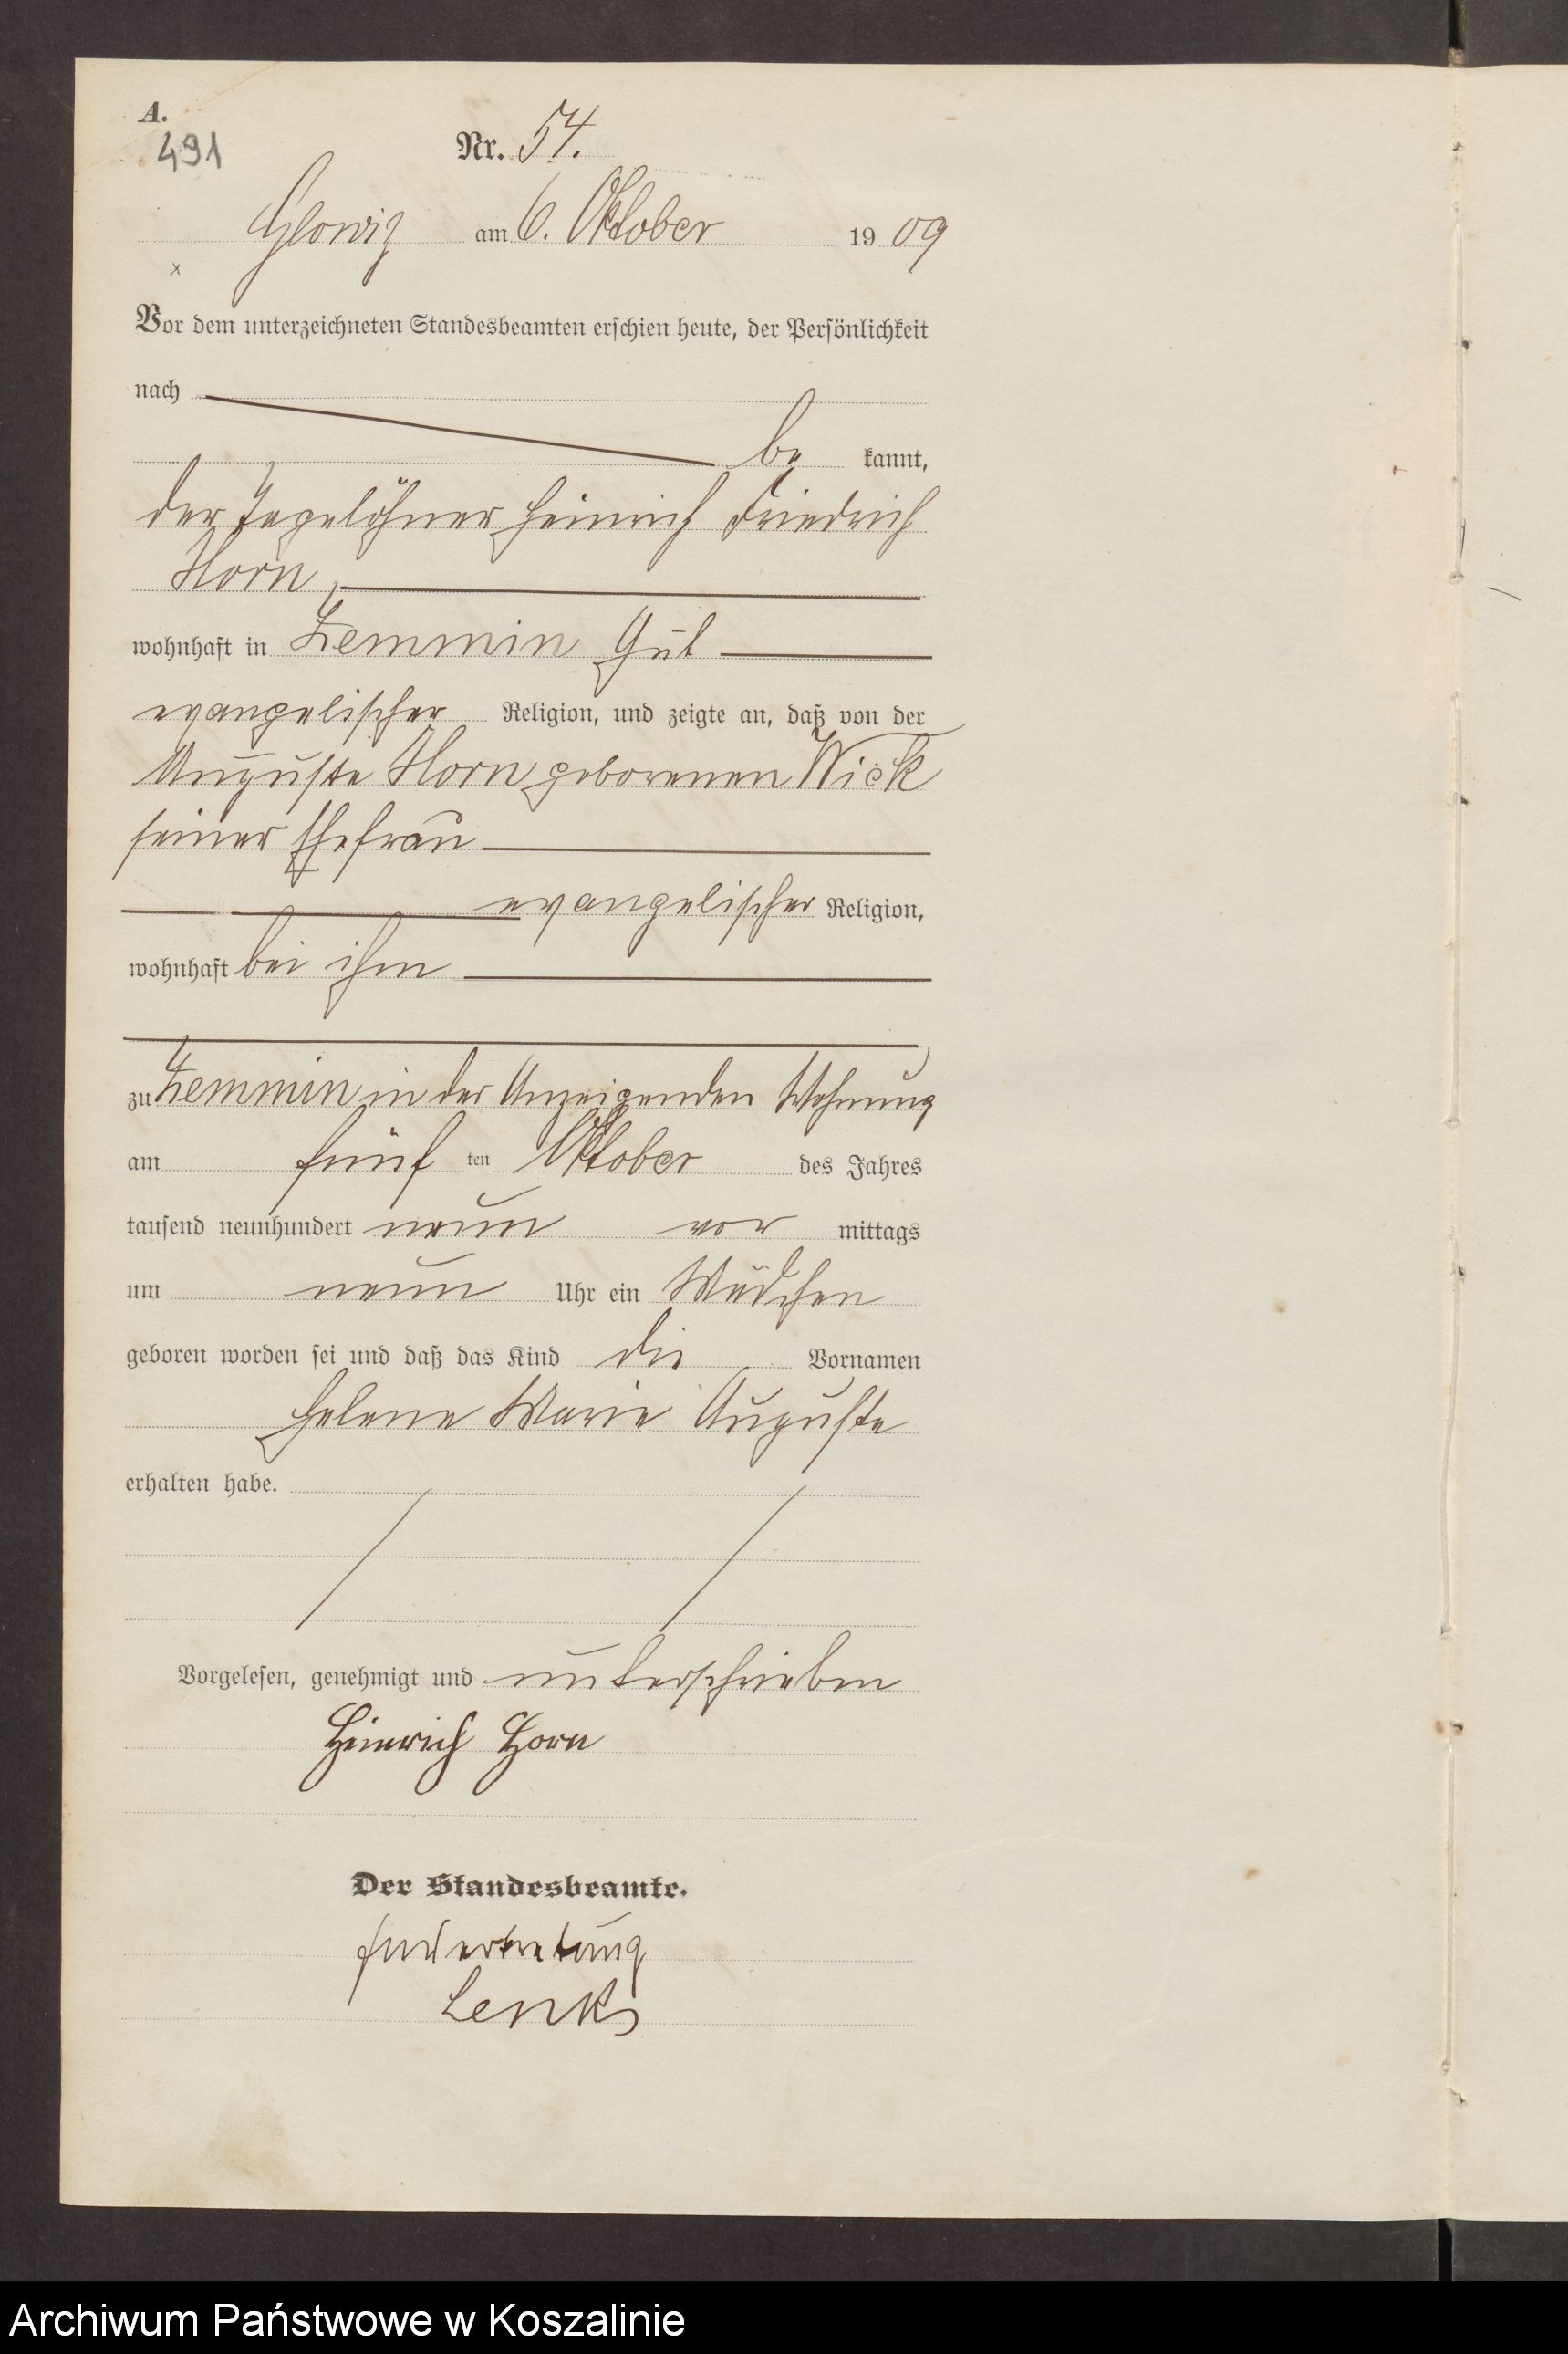 A.
491
Nr. 54.
Glowitz am 6. Oktober 1909
Vor dem unterzeichneten Standesbeamten erschien heute, der Persönlichkeit
nach
be kannt,
der Tagelöhner Heinrich Friedrich
Horn,
wohnhaft in Zemmin Gut
evangelischer Religion, und zeigte an, daß von der
Auguste Horn geborenen Wick
seiner Ehefrau
evangelischer Religion,
wohnhaft bei ihm
zu Zemmin in der Anzeigenden Wohnung
am fünf ten Oktober des Jahres
tausend neunhundert neun vor mittags
um neun Uhr ein Mädchen
geboren worden sei und daß das Kind die Vornamen
Helene Marie Auguste
erhalten habe.
Vorgelesen, genehmigt und unterschrieben
Heinrich Horn
Der Standesbeamte.
In Vertretung
Archiwum Państwowe w Koszalinie